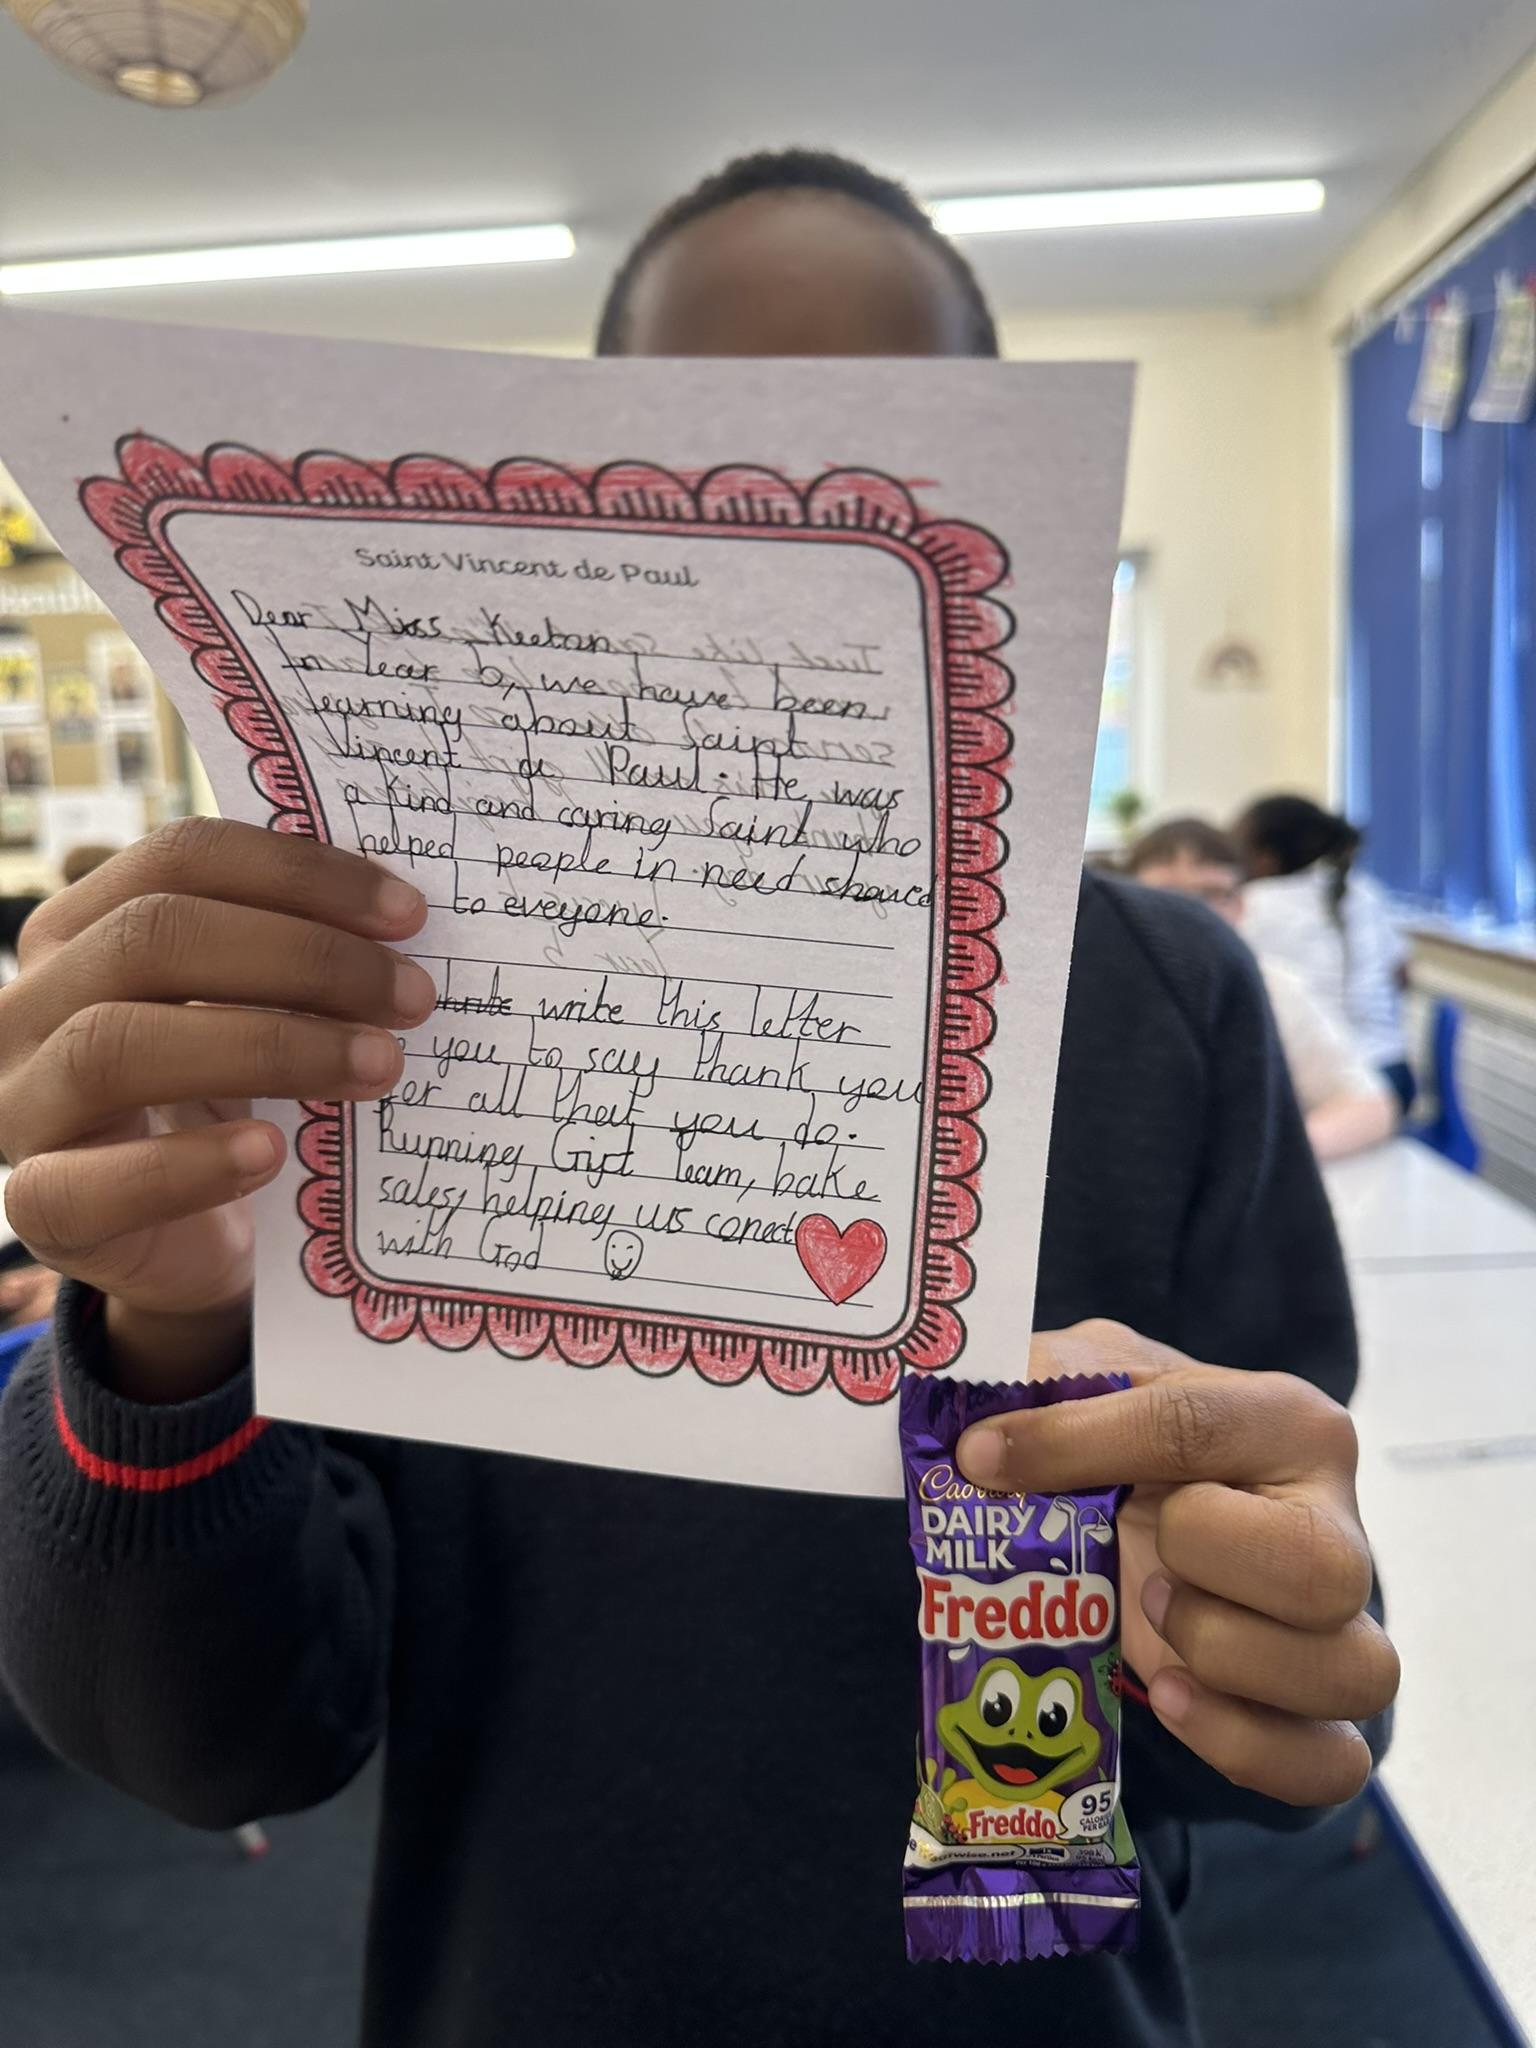 Saint Vincent de Paul
Dear Miss Keetan
In Year 6, we have been
learning about Saint
Vincent de Paul. He was
a kind and caring Saint who
helped people in need shaued
to eveyone.
write this letter
you to say thank you
for all that you do.
Running Gift Team, bake
sales, helping us conect
with God
Cadbury
DAIRY
MILK
Freddo
Freddo
95
CALORIES
PER BAR